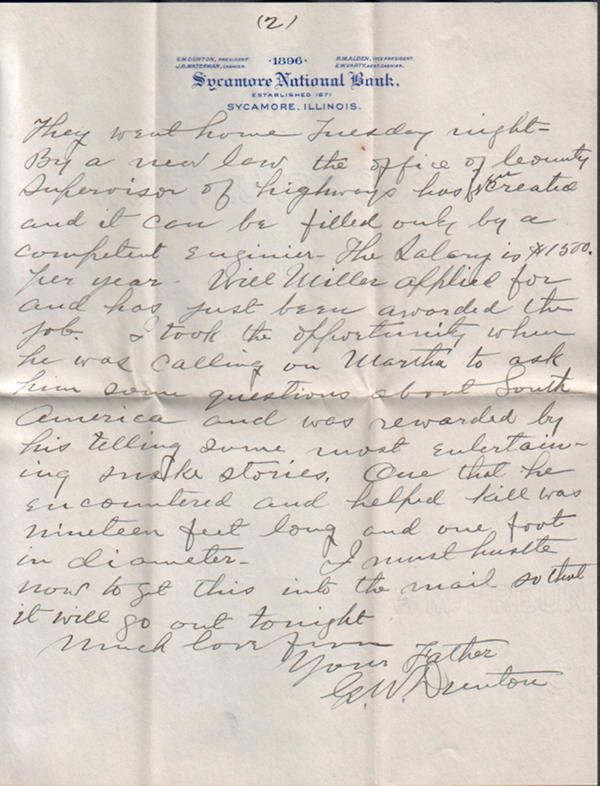 (2)
G.W. DUNTON, PRESIDENT. ·1896· P.M. ALDEN, VICE PRESIDENT.
J.R. WATERMAN, CASHIER. E.W. VARTY, ASST. CASHIER.
Sycamore National Bank,
ESTABLISHED 1871
SYCAMORE, ILLINOIS.
They went home Tuesday night-
By a new law the office of County
Supervisor of highways has been created
and it can be filled only by a
competent enginier- The Salary is $1500.
per year- Will Miller applied for
and has just been awarded the
job. I took the opportunity when
he was calling on Martha to ask
him some questions about South
America and was rewarded by
his telling some most entertain-
ing snake stories. One that he
encountered and helped kill was
nineteen feet long and one foot
in diameter- I must hustle
now to get this into the mail so that
it will go out tonight
Much love from
Your Father
G.W. Dunton